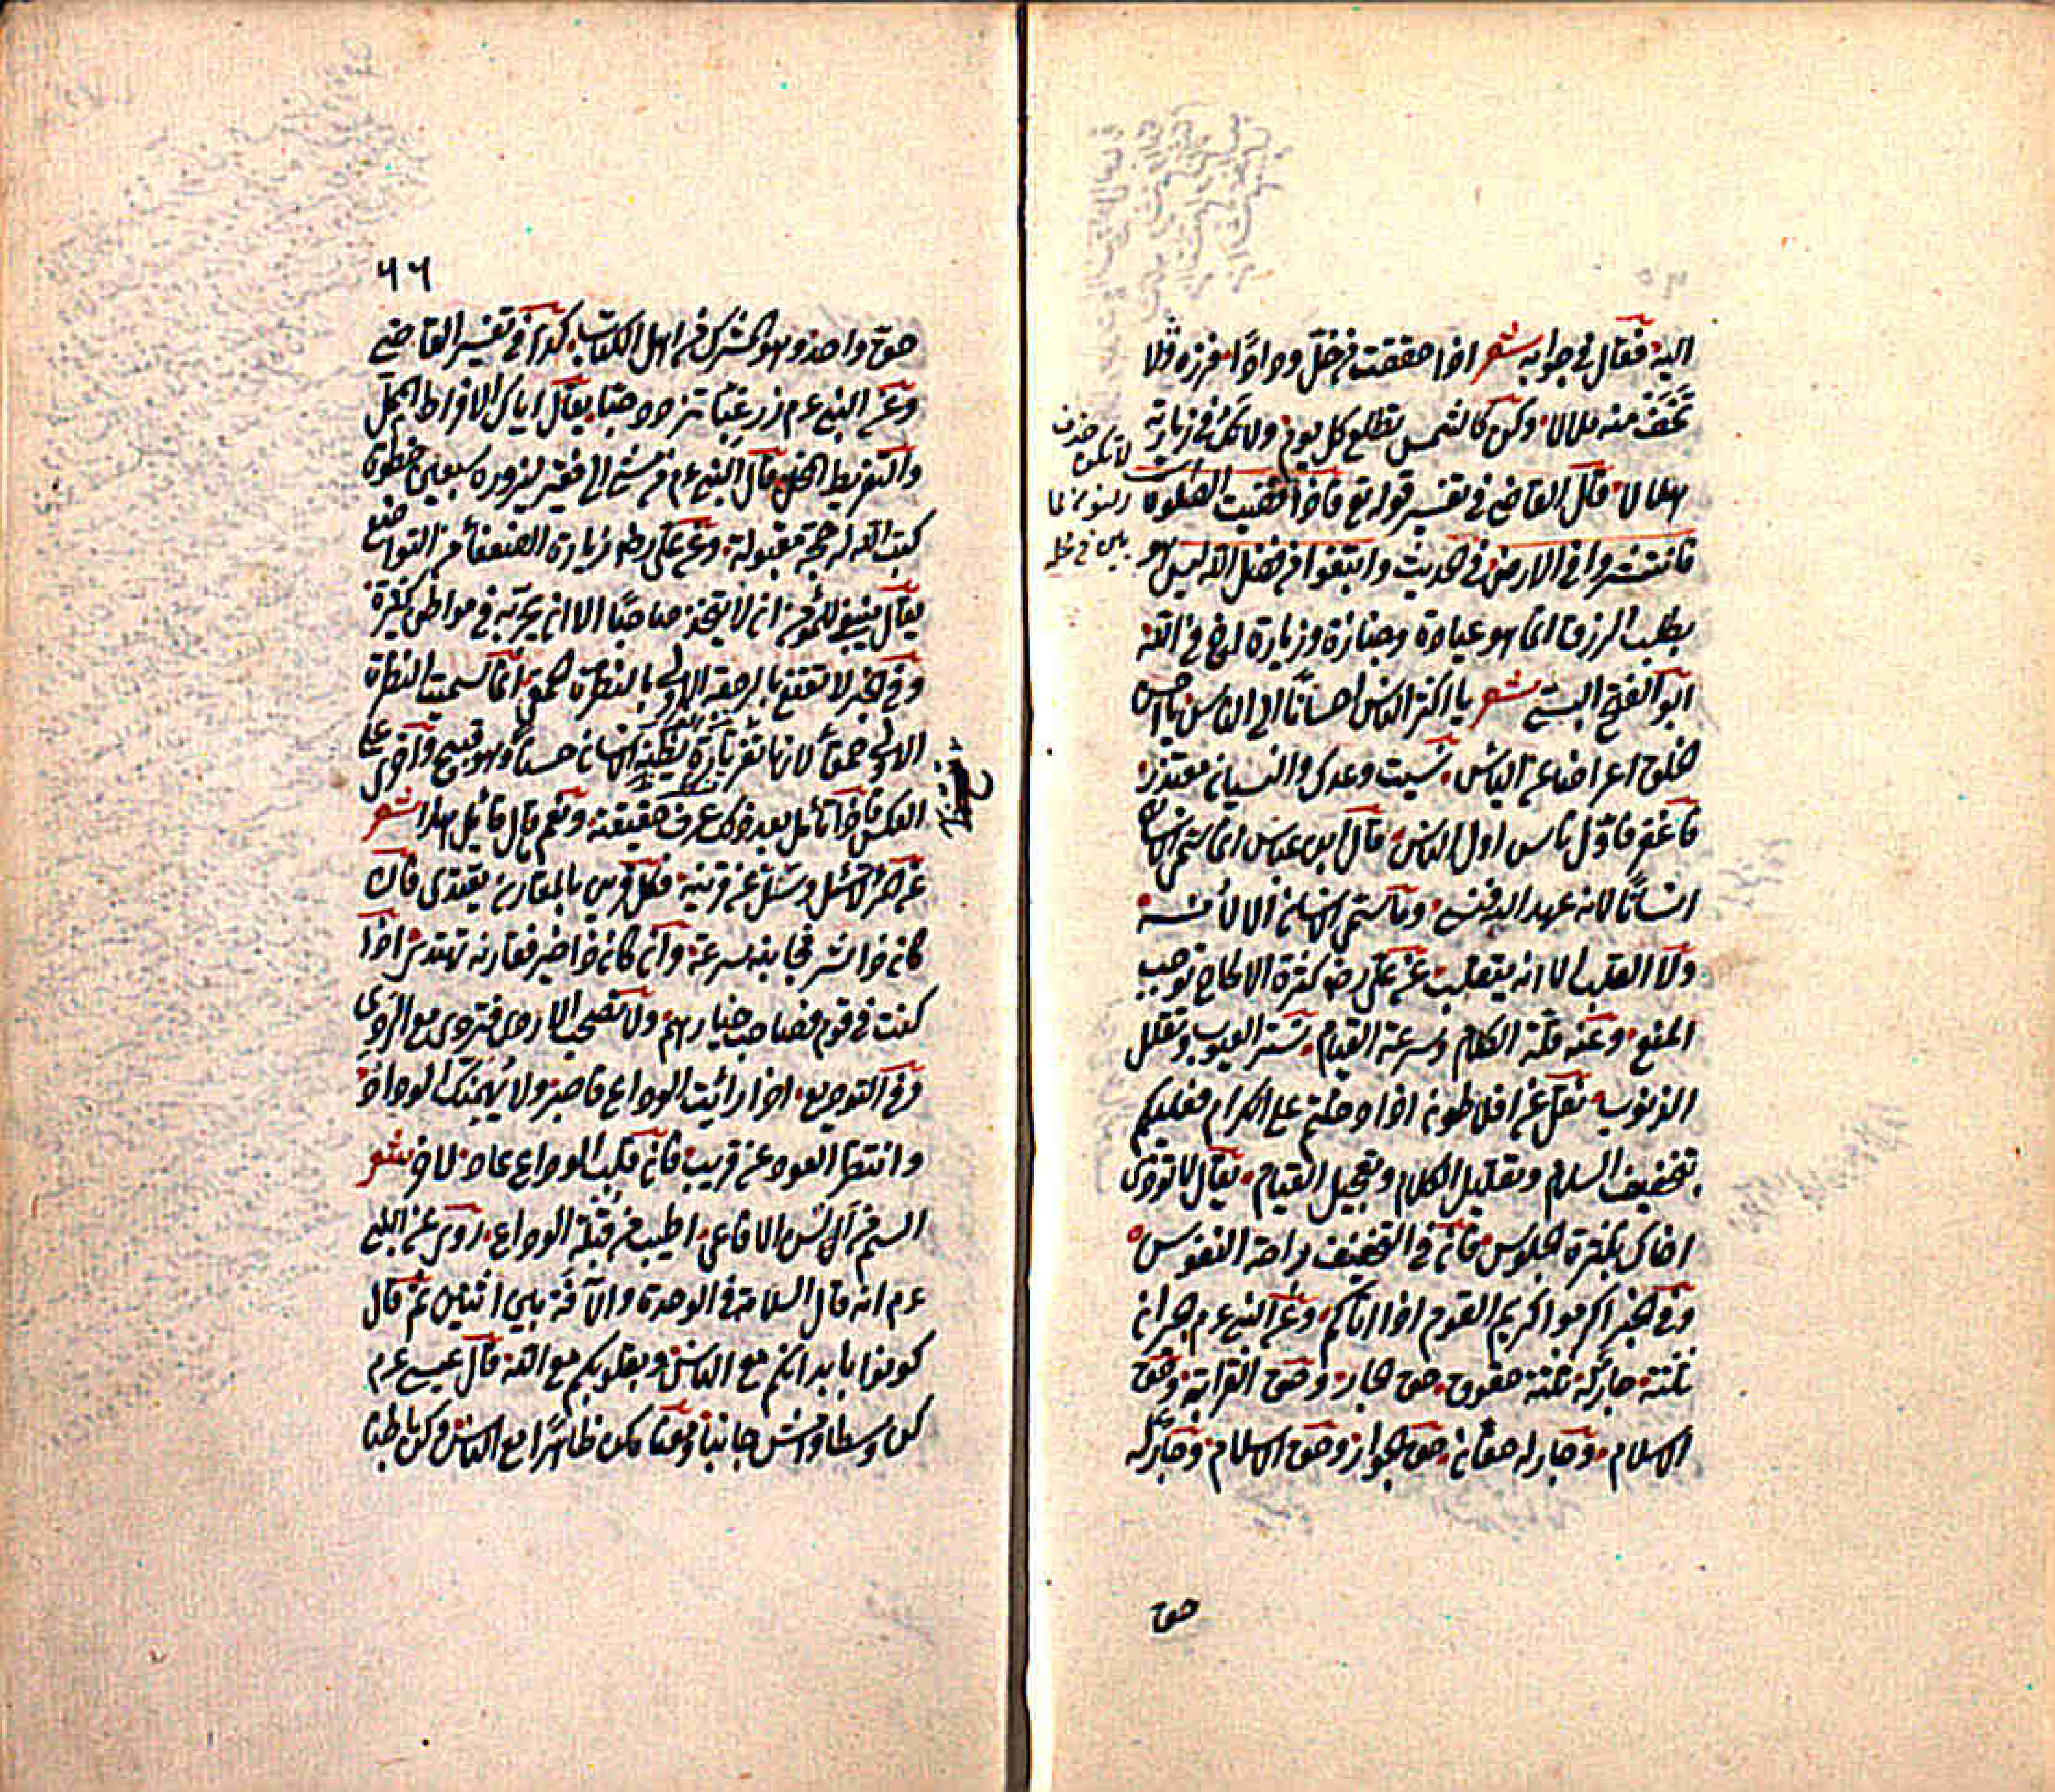 اليه فقال في جوابه شعر اذا حققت من خل ودادا فزره ولا
تخف منه ملالا وكن كالشمس تطلع كل يوم ولا تك في زيارته
هلالا قال القاضي في تفسير قوله تع فاذا قضيت الصلوة
فانتشروا في الارض في الحديث وابتغوا من فضل الله ليس هو
بطلب الرزق انما هو عيادة وجنازة وزيارة اخ في الله
ابو الفتح البستي شعر يا اكثر الناس احسانا الى الناس يا احسن
الخلق اعراضا عن الباس نسيت وعدك والنسيان مغتفر
فاغفر فاول ناس اول الناس قال ابن عباس انما سمي الانسان
انسانا لانه عهد اليه فنسي وما سمي الانسان الا لأنسه
ولا القلب الا انه يتقلب عن علي رض كثرة الالحاح توجب
المنع وعنه قلة الكلام وسرعة القيام تستر العيوب وتقلل
الذنوب نقل عن افلاطون اذا دخلتم على الكرام فعليكم
بتخفيف السلام وتقليل الكلام وتعجيل القيام يقال لا توذى
اخاك بكثرة الجلوس فان في التخفيف راحة النفوس
وفي الخبر اكرموا كريم القوم اذا اتاكم وعن النبي عم الجيران
ثلثة جار له ثلثة حقوق حق الجار وحق القرابة وحق
الاسلام وجار له حقان حق الجوار وحق الاسلام وجار له
حق
٦٦
حق واحد وهو المشرك من اهل الكتاب كذا في تفسير القاضي
وعن النبي عم زر غبا تزدد حبا يقال اياك الافراط الممل
والتفريط المخل قال النبي عم من مشى الى فقير ليزوره سبعين خطوة
كتب الله له حجة مقبولة وعن علي رض زيارة الضعفأ من التواضع
يقال ينبغي للمؤمن ان لا يتخذ صاحبا الا ان يجربه في مواطن كثيرة
وفي الخبر لا تقنع بالرمقة الاولى بالنظرة الحمق انما سميت النظرة
الاولى حمقا لانها تغر بأنه يظنه الانسان حسنا وهو قبيح واخرى على
العكس فاذا تأمل بعد ذلك عرف حقيقته ونعم قال قائل هذا شعر
عن المرء لا تسئل وسئل عن قرينه فكل قرين بالمقارن يقتدى فان
كان ذا شر فجانبه سرعة وان كان ذا خير فقارنه تهتدى اذا
كنت في قوم فصاحب خيارهم ولا تصحب الاردى فتردى مع الردى
وفي التوديع اذا رأيت الوداع فاصبر ولا يهمنك الوداد
وانتظر العود عن قريب فان قلب الوداع عاد لا و شعر
السم من السن الافاعي اطيب من قبلة الوداع روى عن النبي
عم انه قال السلامة في الوحدة والآفة بين اثنين ثم قال
كونوا بابدانكم مع الناس وبقلوبكم مع الله قال عيسى عم
كن وسطا وامش جانبا ومعناه كن ظاهرا مع الناس وكن باطنا